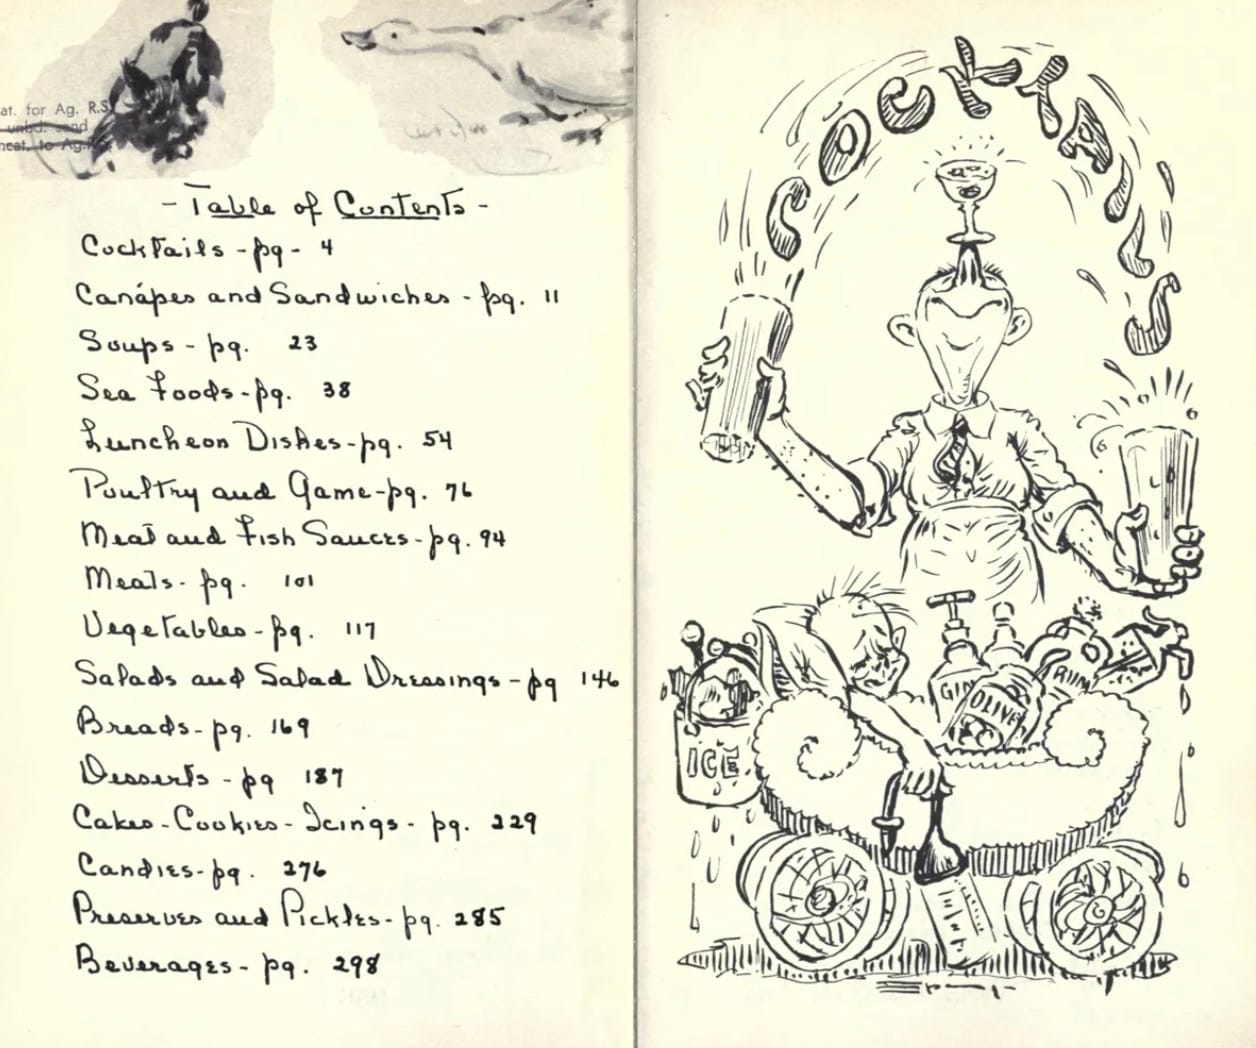 at. for Ag. R.S.
unbd. send
neat. to Ag.
- Table of Contents -
Cocktails - pg - 4
Canápes and Sandwiches - pg. 11
Soups - pg. 23
Sea Foods - pg. 38
Luncheon Dishes - pg. 54
Poultry and Game - pg. 76
Meat and Fish Sauces - pg. 94
Meats - pg. 101
Vegetables - pg. 117
Salads and Salad Dressings - pg 146
Breads - pg. 169
Desserts - pg 187
Cakes - Cookies - Icings - pg. 229
Candies - pg. 276
Preserves and Pickles - pg. 285
Beverages - pg. 298
COCKTAILS
GIN
OLIVES
RUM
ICE